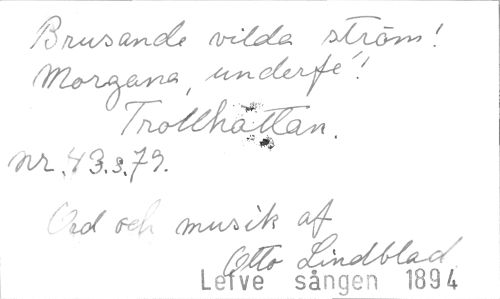 Brusande vilda ström!
Morgana, underfé!
Trollhättan.
nr. 43. s. 79.
Ord och musik af
Otto Lindblad
Lefve sången 1894